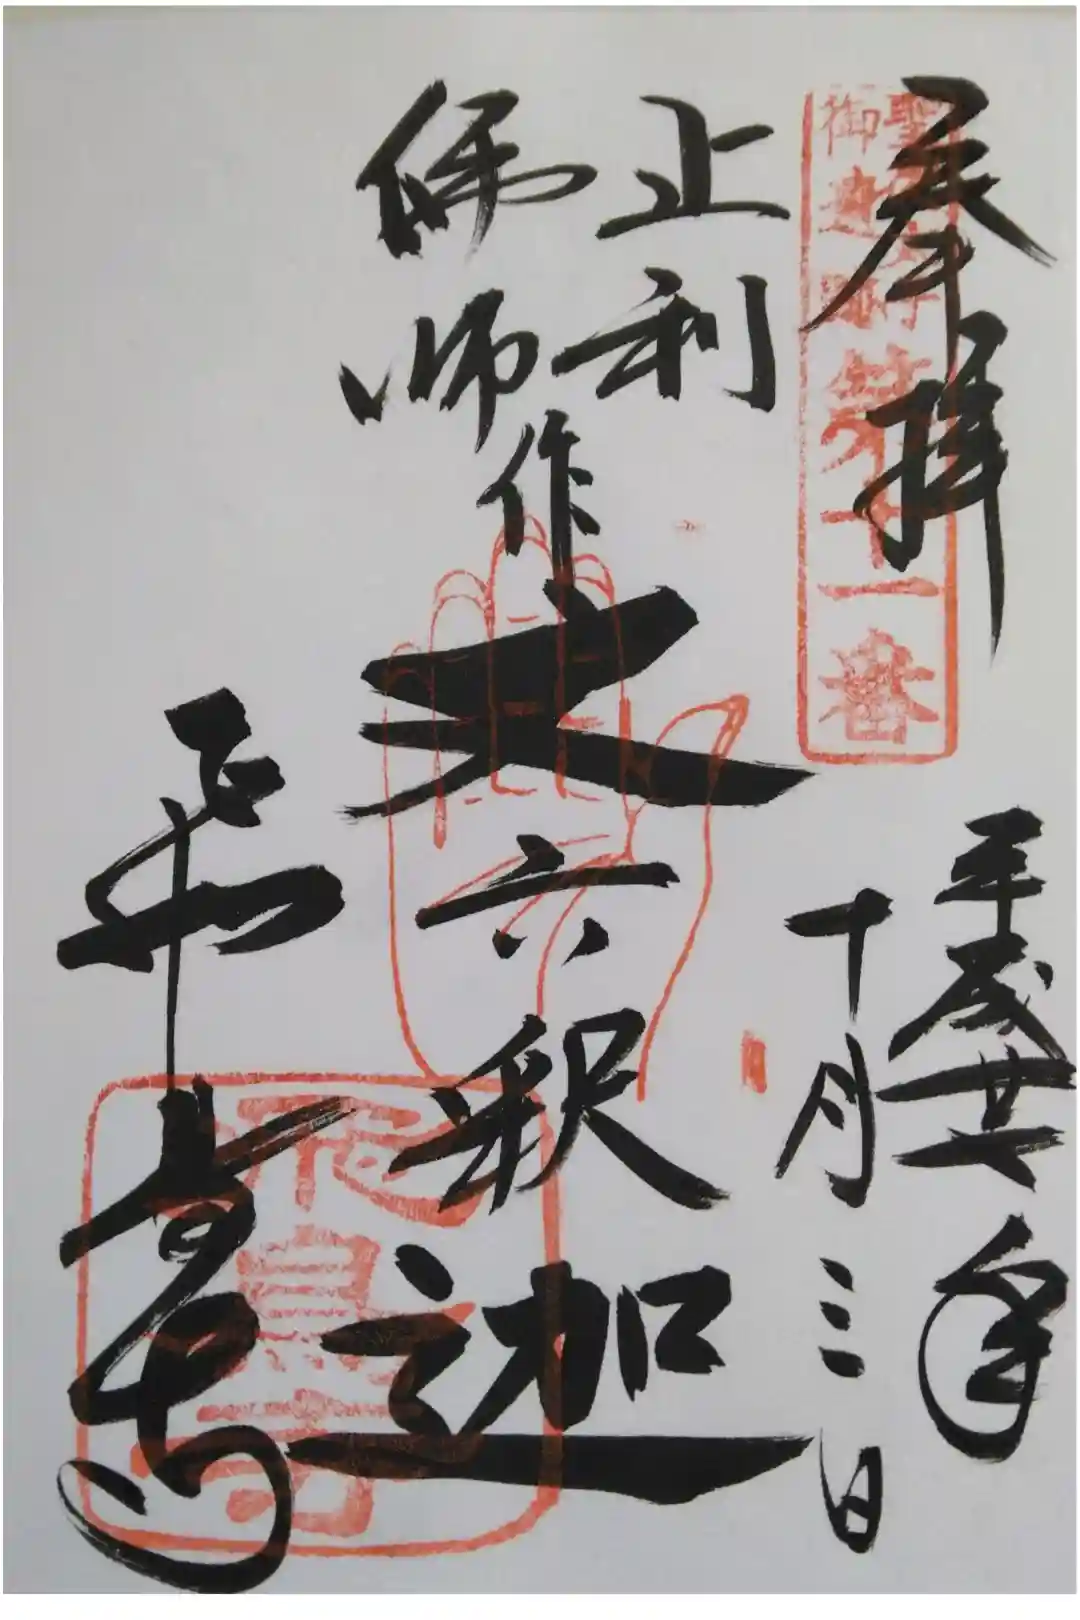 奉拝
聖徳太子
御遺跡
第十一番
平成廿一年
十月三日
止利
佛師作
丈六釈迦
飛鳥寺